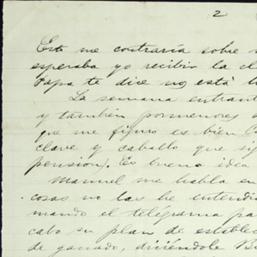 2
Esto me contraría sobre
esperaba yo recibir la
Papa te dice no está
La semana entrant
y también pormenores
que me figuro es bien
clave y caballo que si
pension). Es buena idea
Manuel me habla en
cosas no las he entendi
mando el telégrama pa
cabo su plan de estable
de ganado, diciéndole